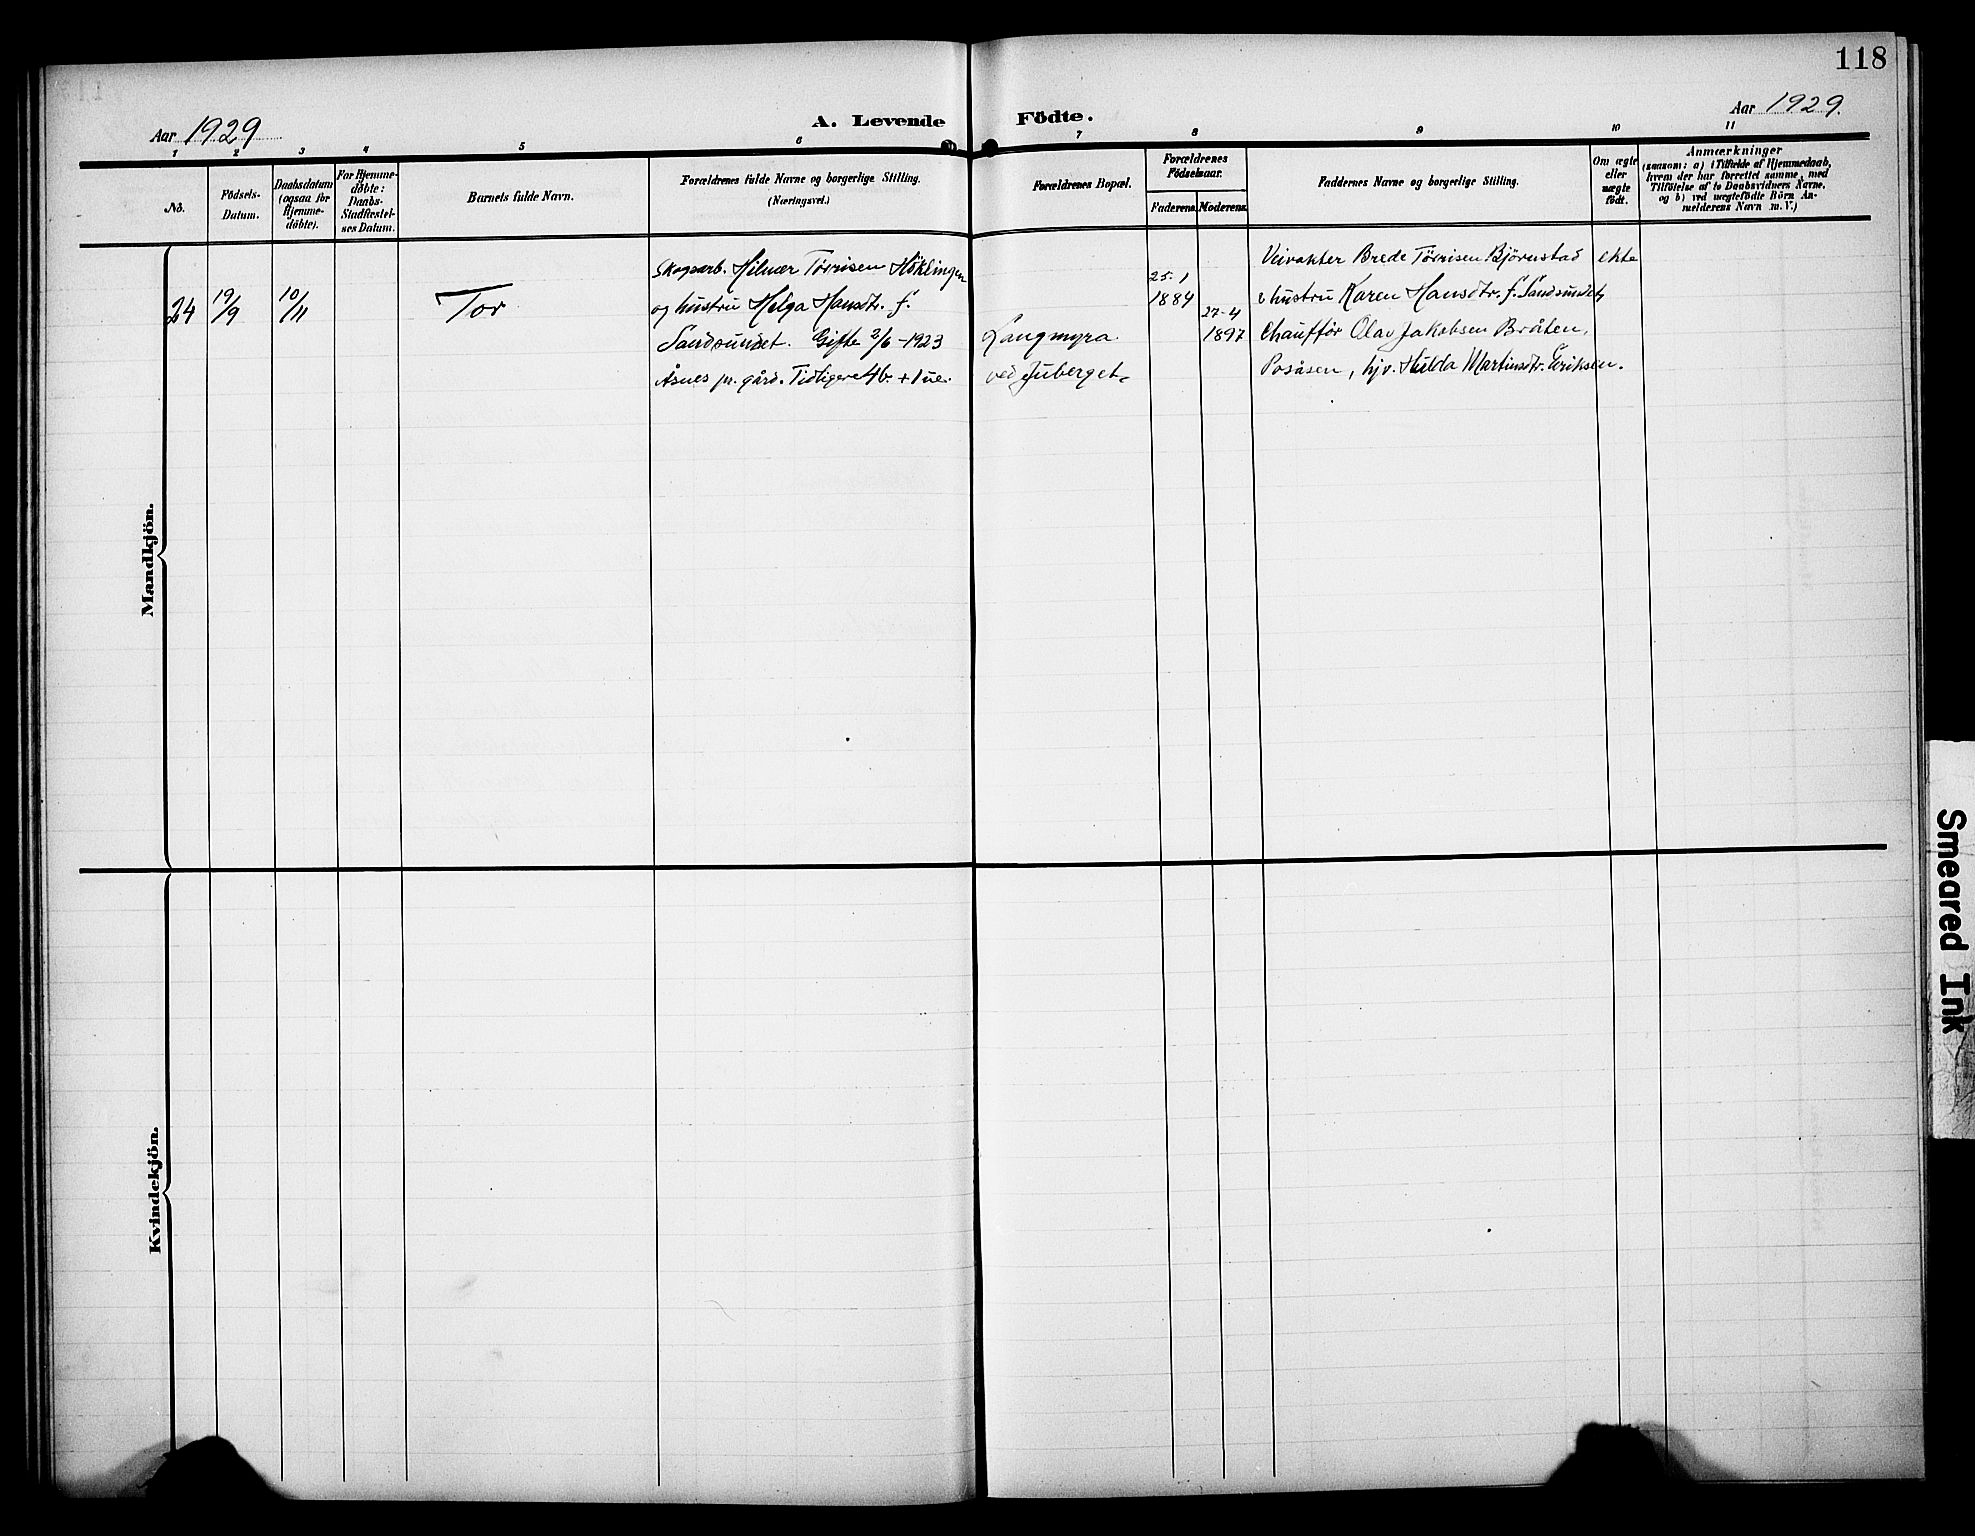 118
Aar 1929
A. Levende Födte.
Aar 1929.
1 2 3 4 5 6 7 8 9 10 11
No.
Födsels-
Datum.
Daabsdatum
(ogsaa for
Hjemme-
döbte).
For Hjemme-
döbte:
Daabs-
Stadfæstel-
ses Datum.
Barnets fulde Navn.
Forældrenes fulde Navne og borgerlige Stilling.
(Næringsvei.)
Forældrenes Bopæl.
Forældrenes
Födselsaar.
Faderens. Moderens.
Faddernes Navne og borgerlige Stilling.
Om ægte
eller
uægte
födt.
Anmærkninger
(saasom: a) i Tilfælde af Hjemmedaab,
hvem der har forrettet samme, med
Tilföielse af to Daabsvidners Navne,
og b) ved uægtefödte Börn An-
melderens Navn m. V.)
Mandkjön.
24
19/9
10/11
Tor
Skogsarb. Hilmer Tørrisen Höklingen
og hustru Helga Hansdtr. f.
Sandsundet. Gifte 2/6-1923
Åsnes pr. gård. Tidligere 4 b. + 1 ue.
Langmyra
ved Juberget.
25-1
1884
27-4
1897
Veivokter Brede Tørrisen Björnstad
& hustru Karen Hansdtr. f. Sandsundet,
Chauffør Olav Jakobsen Bråten,
Posåsen, hjv. Hulda Martinsdtr. Eriksen.
ekte
Kvindekjön.
Smeared Ink